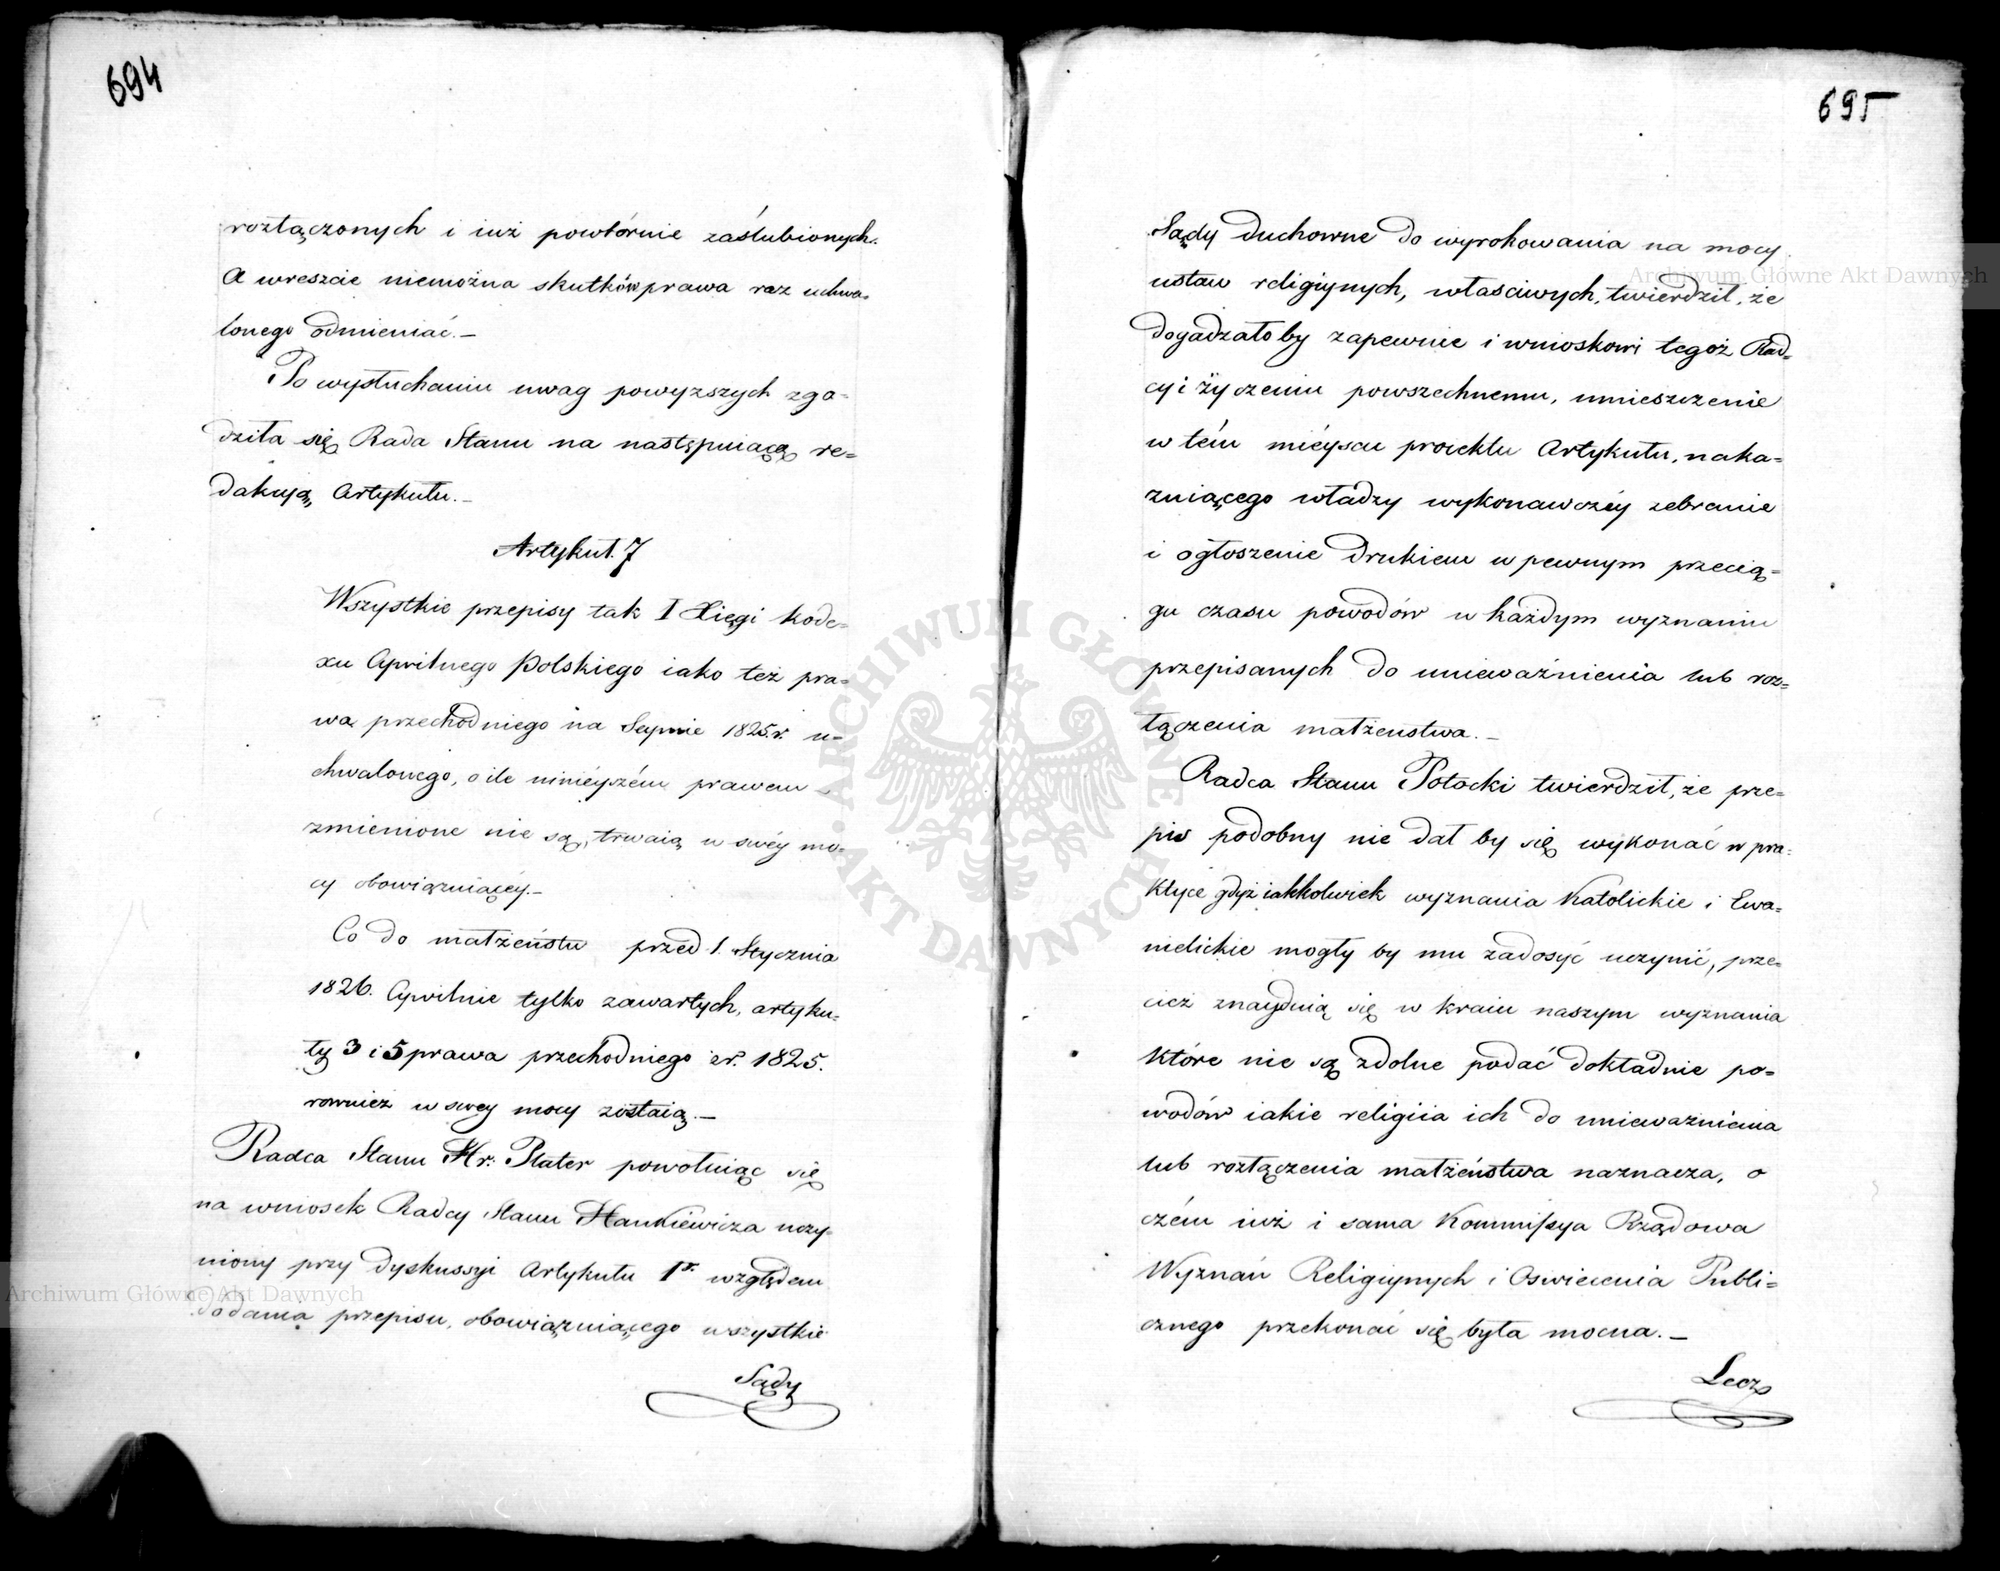 694
roztączonych i iuż powtórnie zaślubionych.
A wreszcie niemożna skutków prawa raz uchwa=
lonego odmieniać.—
Po wysłuchaniu uwag powyższych zgo=
dziła się Rada Stanu na następuiącą re=
dakcyą Artykułu.—
Artykuł. 7
Wszystkie przepisy tak I Xięgi kode=
xu Cywilnego Polskiego iako też pra=
wa przechodniego na Seymie 1825.r. u=
chwalonego, o ile ninieyszém prawem
zmienione nie są, trwaią w swéy mo=
cy obowiązuiącéy.—
Co do małżeństw przed 1. Stycznia
1826. Cywilnie tylko zawartych, artyku=
ły 3 i 5 prawa przechodniego z r. 1825.
rownież w swey mocy zostaią.—
Radca Stanu Hr: Plater powołuiąc się
na wniosek Radcy Stanu Hankiewicza uczy=
niony przy dyskussyi Artykułu 1º względem
dodania przepisu, obowiązuiącego wszystkie
Sądy
695
Sądy Duchowne do wyrokowania na mocy
ustaw religiynych, właściwych, twierdził, że
dogadzałoby zapewnie i wnioskowi tegoż Rad=
cy i życzeniu powszechnemu, umieszczenie
w tém mieyscu proiektu Artykułu, naka=
zuiącego władzy wykonawczéy zebranie
i ogłoszenie drukiem w pewnym przecią=
gu czasu powodów w każdym wyznaniu
przepisanych do unieważnienia lub roz=
łączenia małżeństwa.—
Radca Stanu Potocki twierdził, że prze=
pis podobny nie dał by się wykonać w pra=
ktyce gdyż iakkolwiek wyznania Katolickie i Ewa=
nielickie mogły by mu zadosyć uczynić, prze=
cież znayduią się w kraiu naszym wyznania
które nie są zdolne podać dokładnie po=
wodów iakie religiia ich do unieważnienia
lub roztączenia małżeństwa naznacza, o
czém iuż i sama Kommissya Rządowa
Wyznań Religiynych i Oswiecenia Publi=
cznego przekonać się była mocna.—
Lecz
Archiwum Główne Akt Dawnych
Archiwum Główne Akt Dawnych
ARCHIWUM GŁÓWNE AKT DAWNYCH